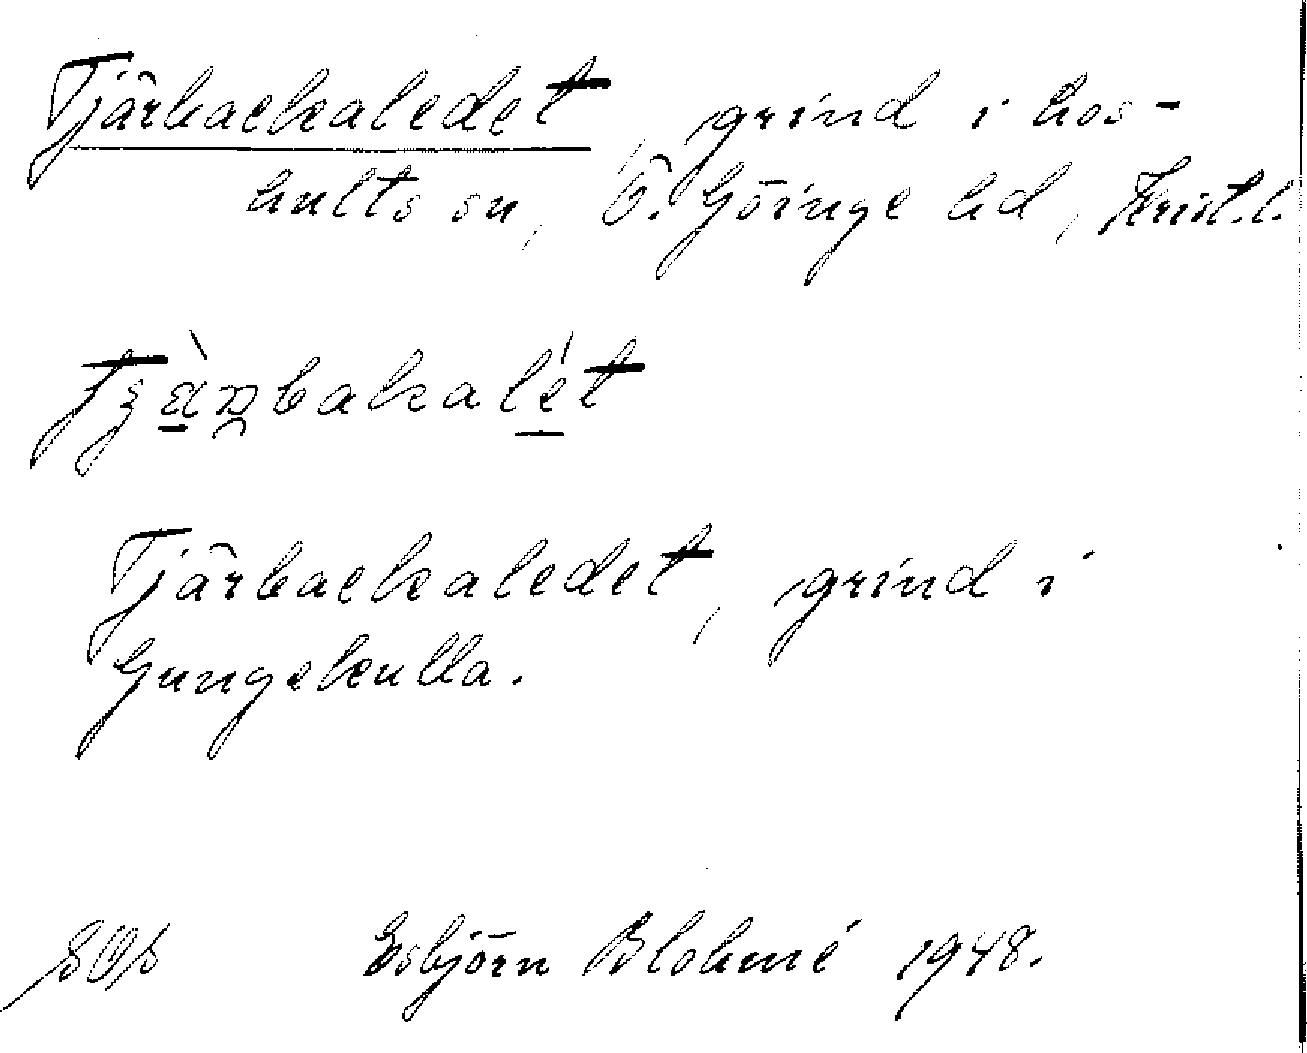 Tjärbackaledet, grind i hos-
hults sn, Ö. Göinge hd, Krist.l.
Tjärbackaledet, grind i
Gungekulla.
Esbjörn Blohmé 1948.